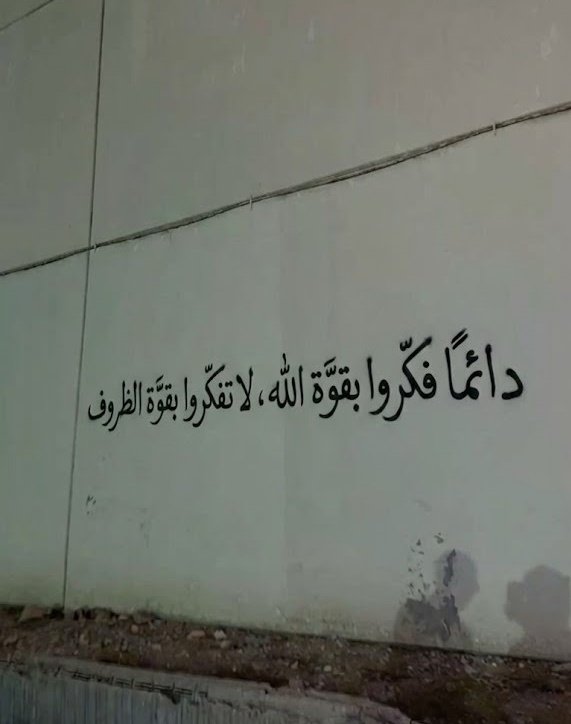 دائمًا فكّروا بقوَّة الله، لا تفكّروا بقوَّة الظروف